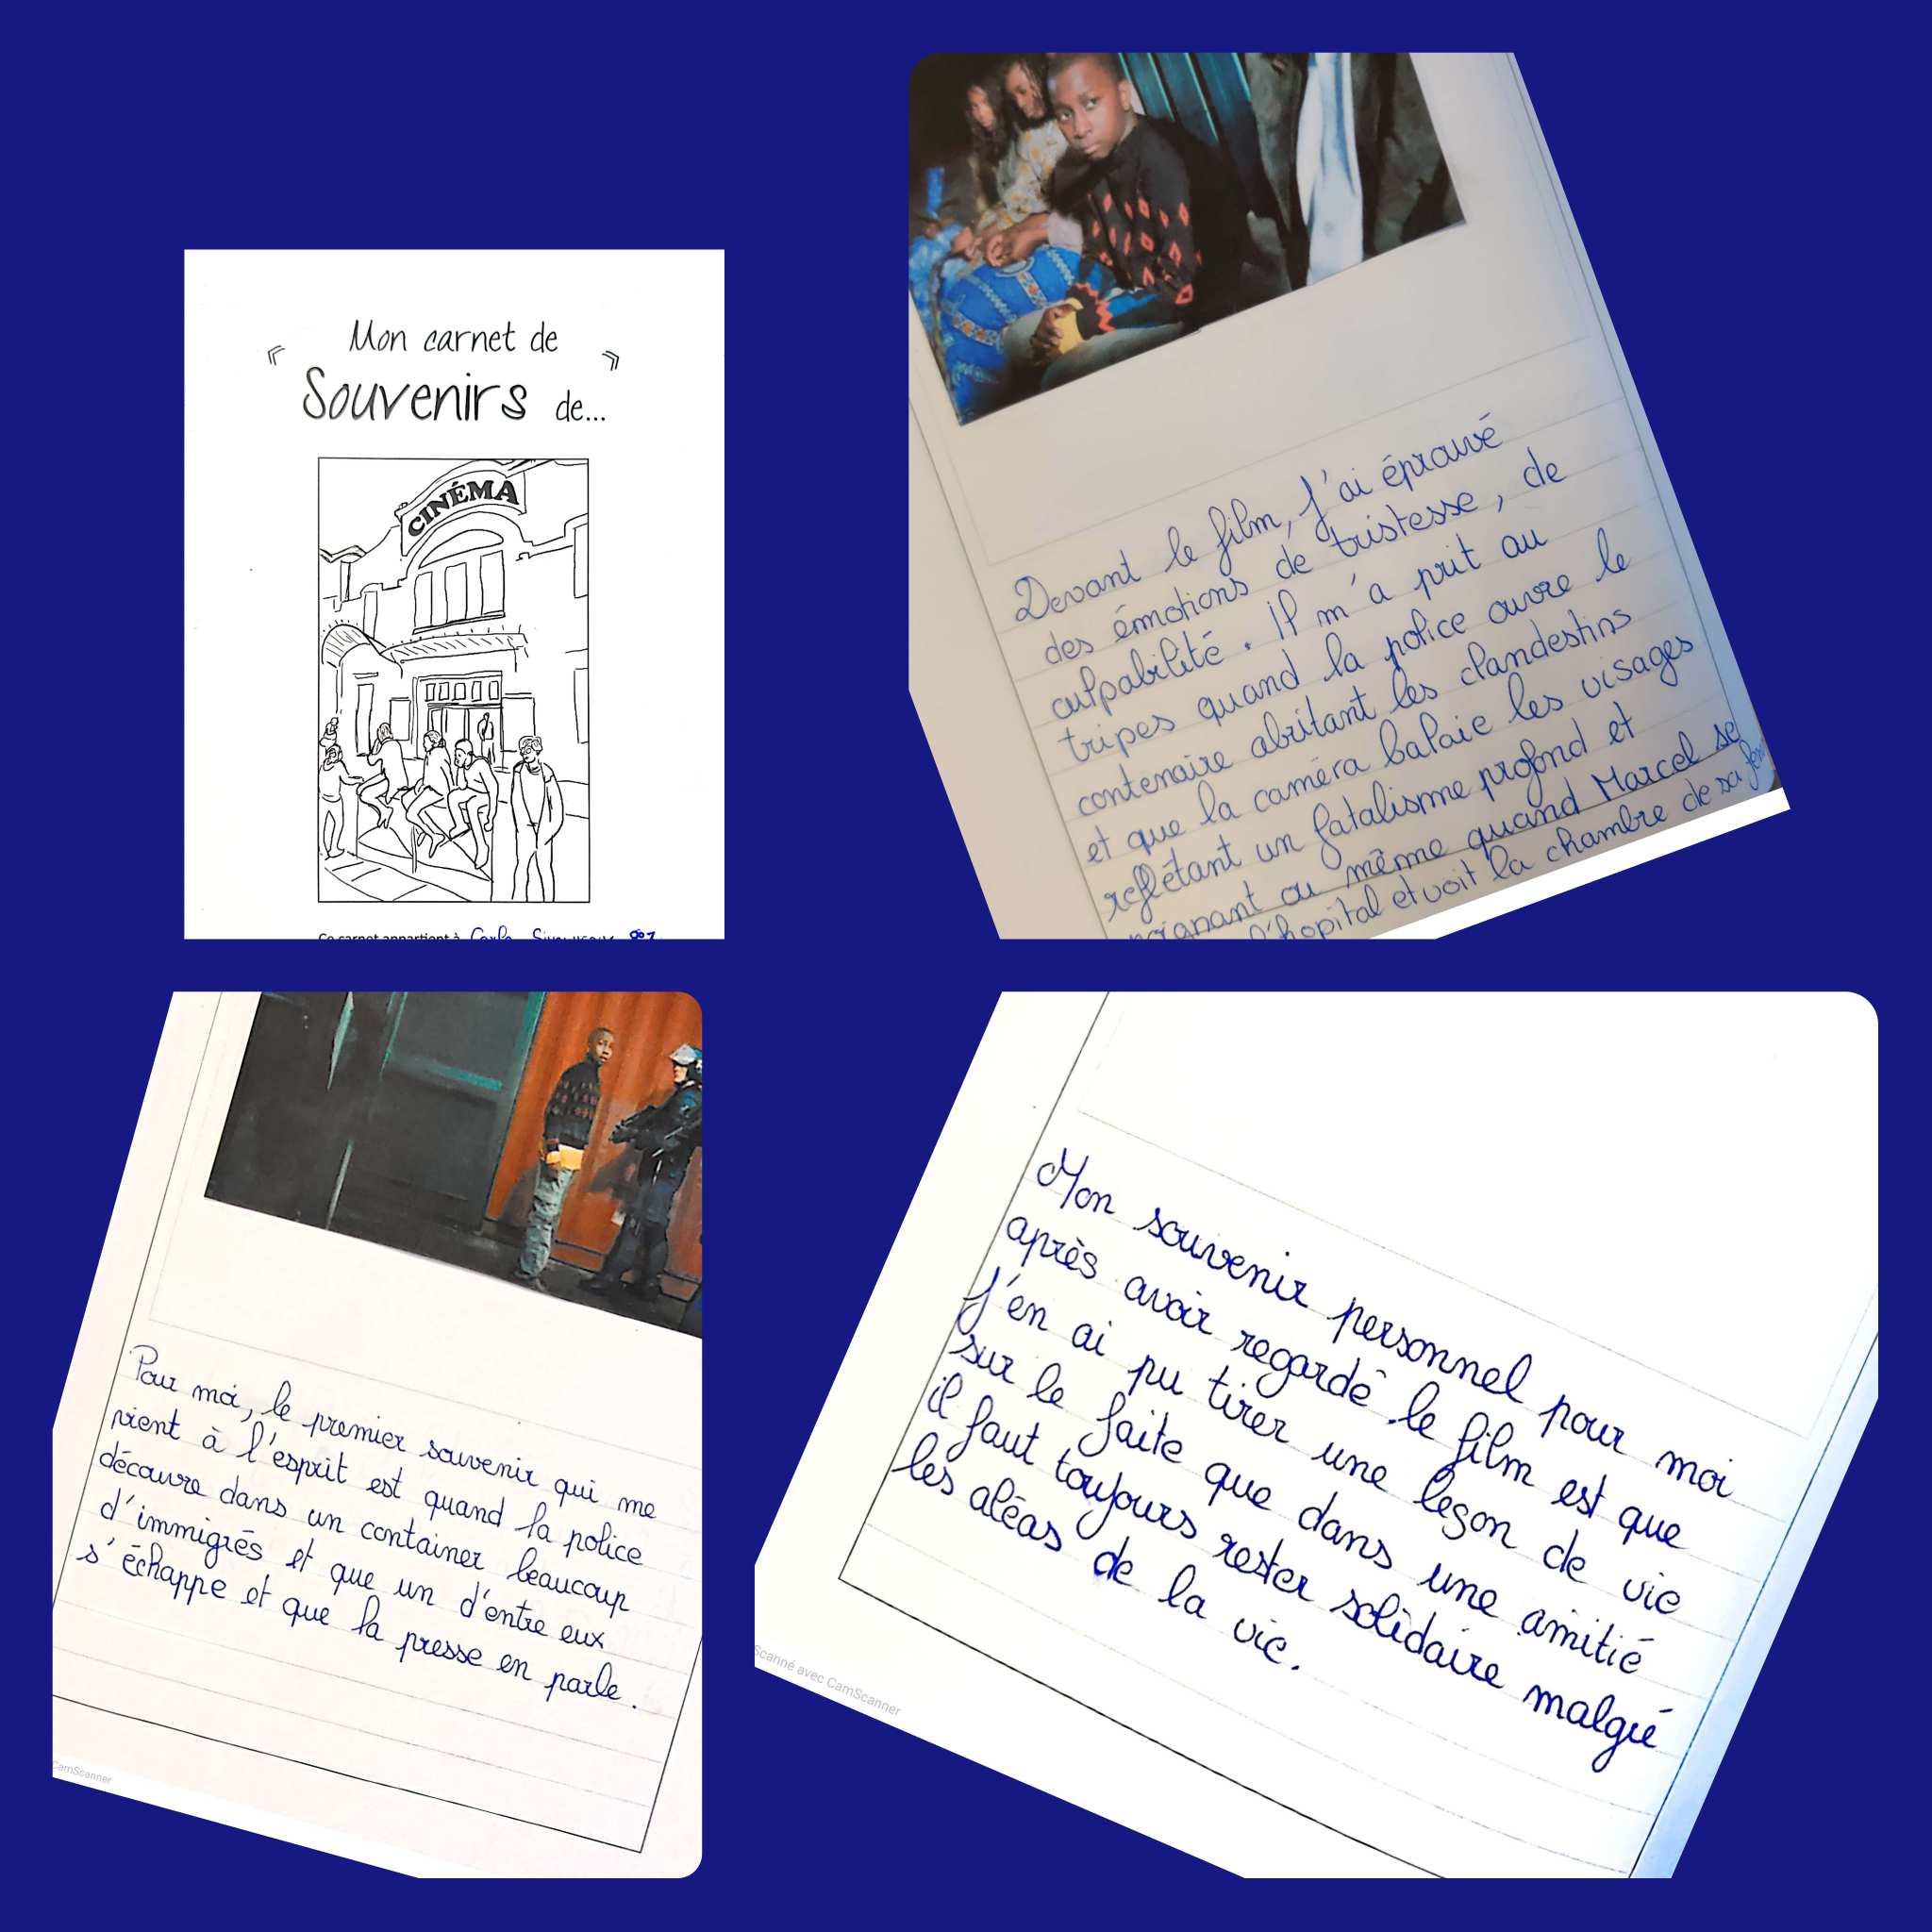 « Mon carnet de »
Souvenirs de...
CINÉMA
Ce carnet appartient à Carla
Devant le film, J'ai éprouvé
des émotions de tristesse, de
culpabilité. Il m'a prit au
tripes quand la police ouvre le
contenaire abritant les clandestins
et que la caméra balaie les visages
reflétant un fatalisme profond et
poignant ou même quand Marcel se
l'hopital et voit la chambre de sa
Pour moi, le premier souvenir qui me
vient à l'esprit est quand la police
découvre dans un container beaucoup
d'immigrés et que un d'entre eux
s'échappe et que la presse en parle.
CamScanner
Mon souvenir personnel pour moi
après avoir regardé le film est que
J'en ai pu tirer une leçon de vie
sur le faite que dans une amitié
il faut toujours rester solidaire malgré
les aléas de la vie.
Scanné avec CamScanner